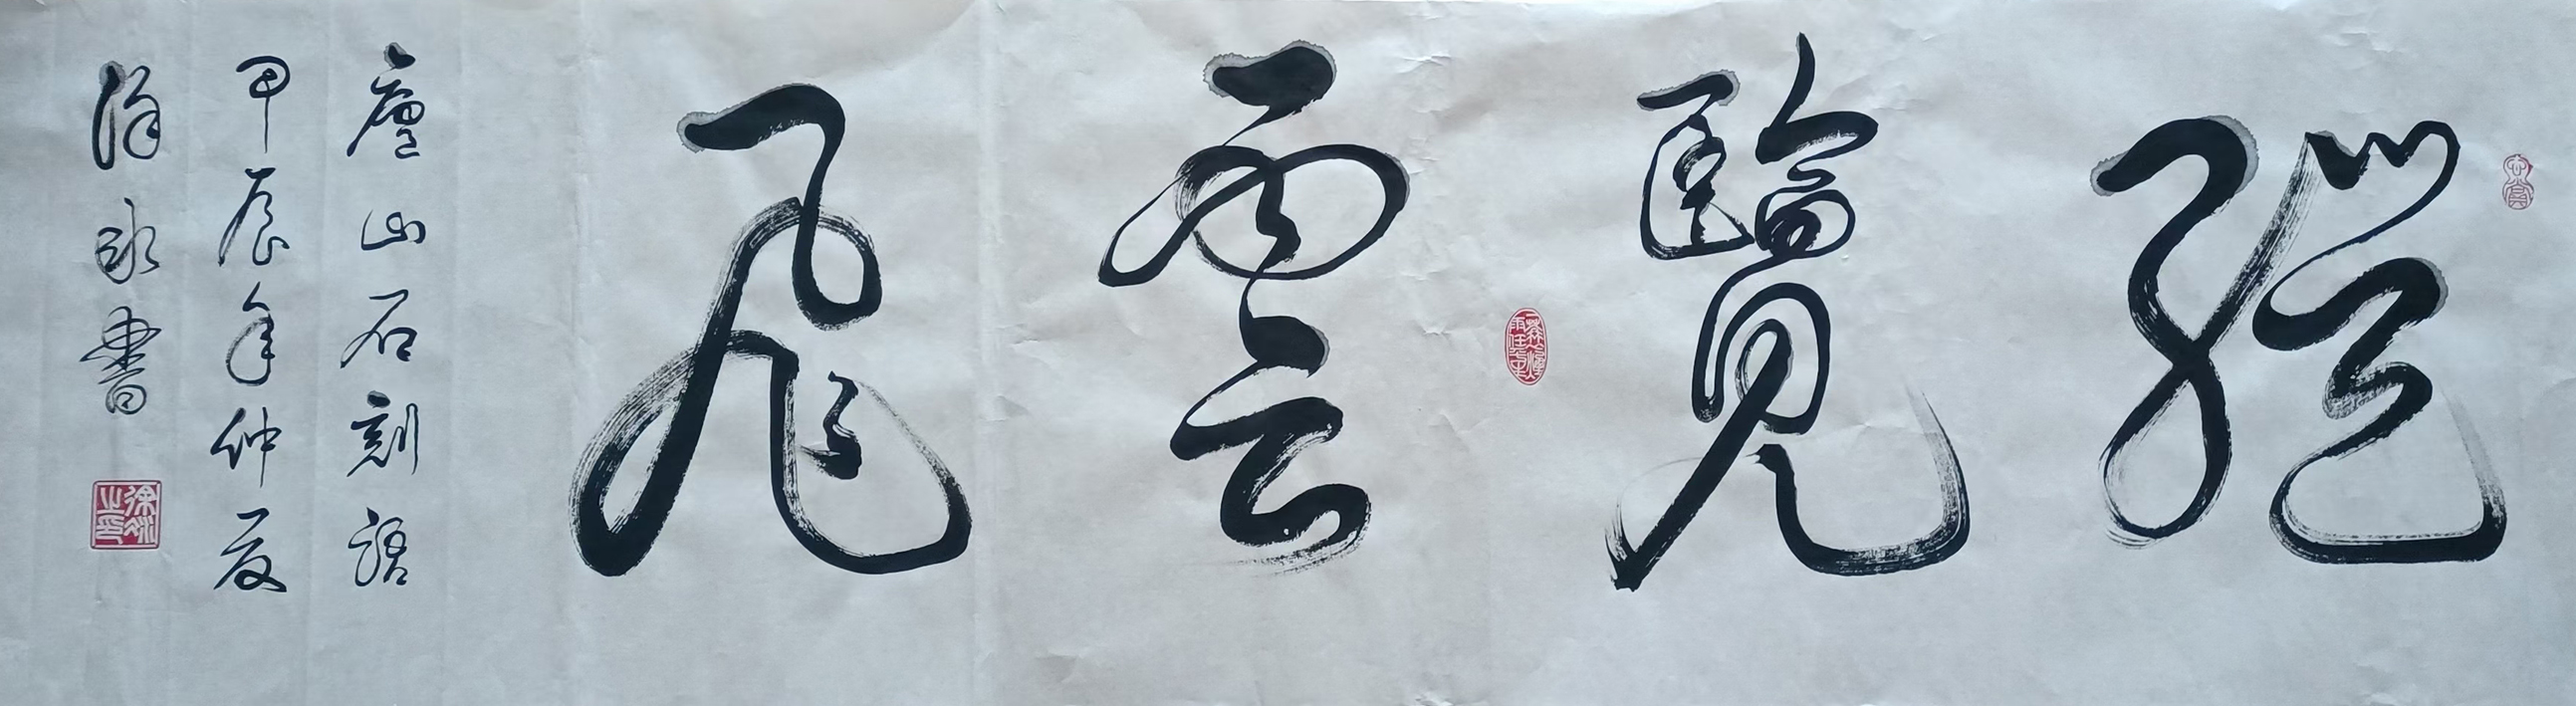 縱覽雲飛
廬山石刻語
甲辰年仲夏
徐書